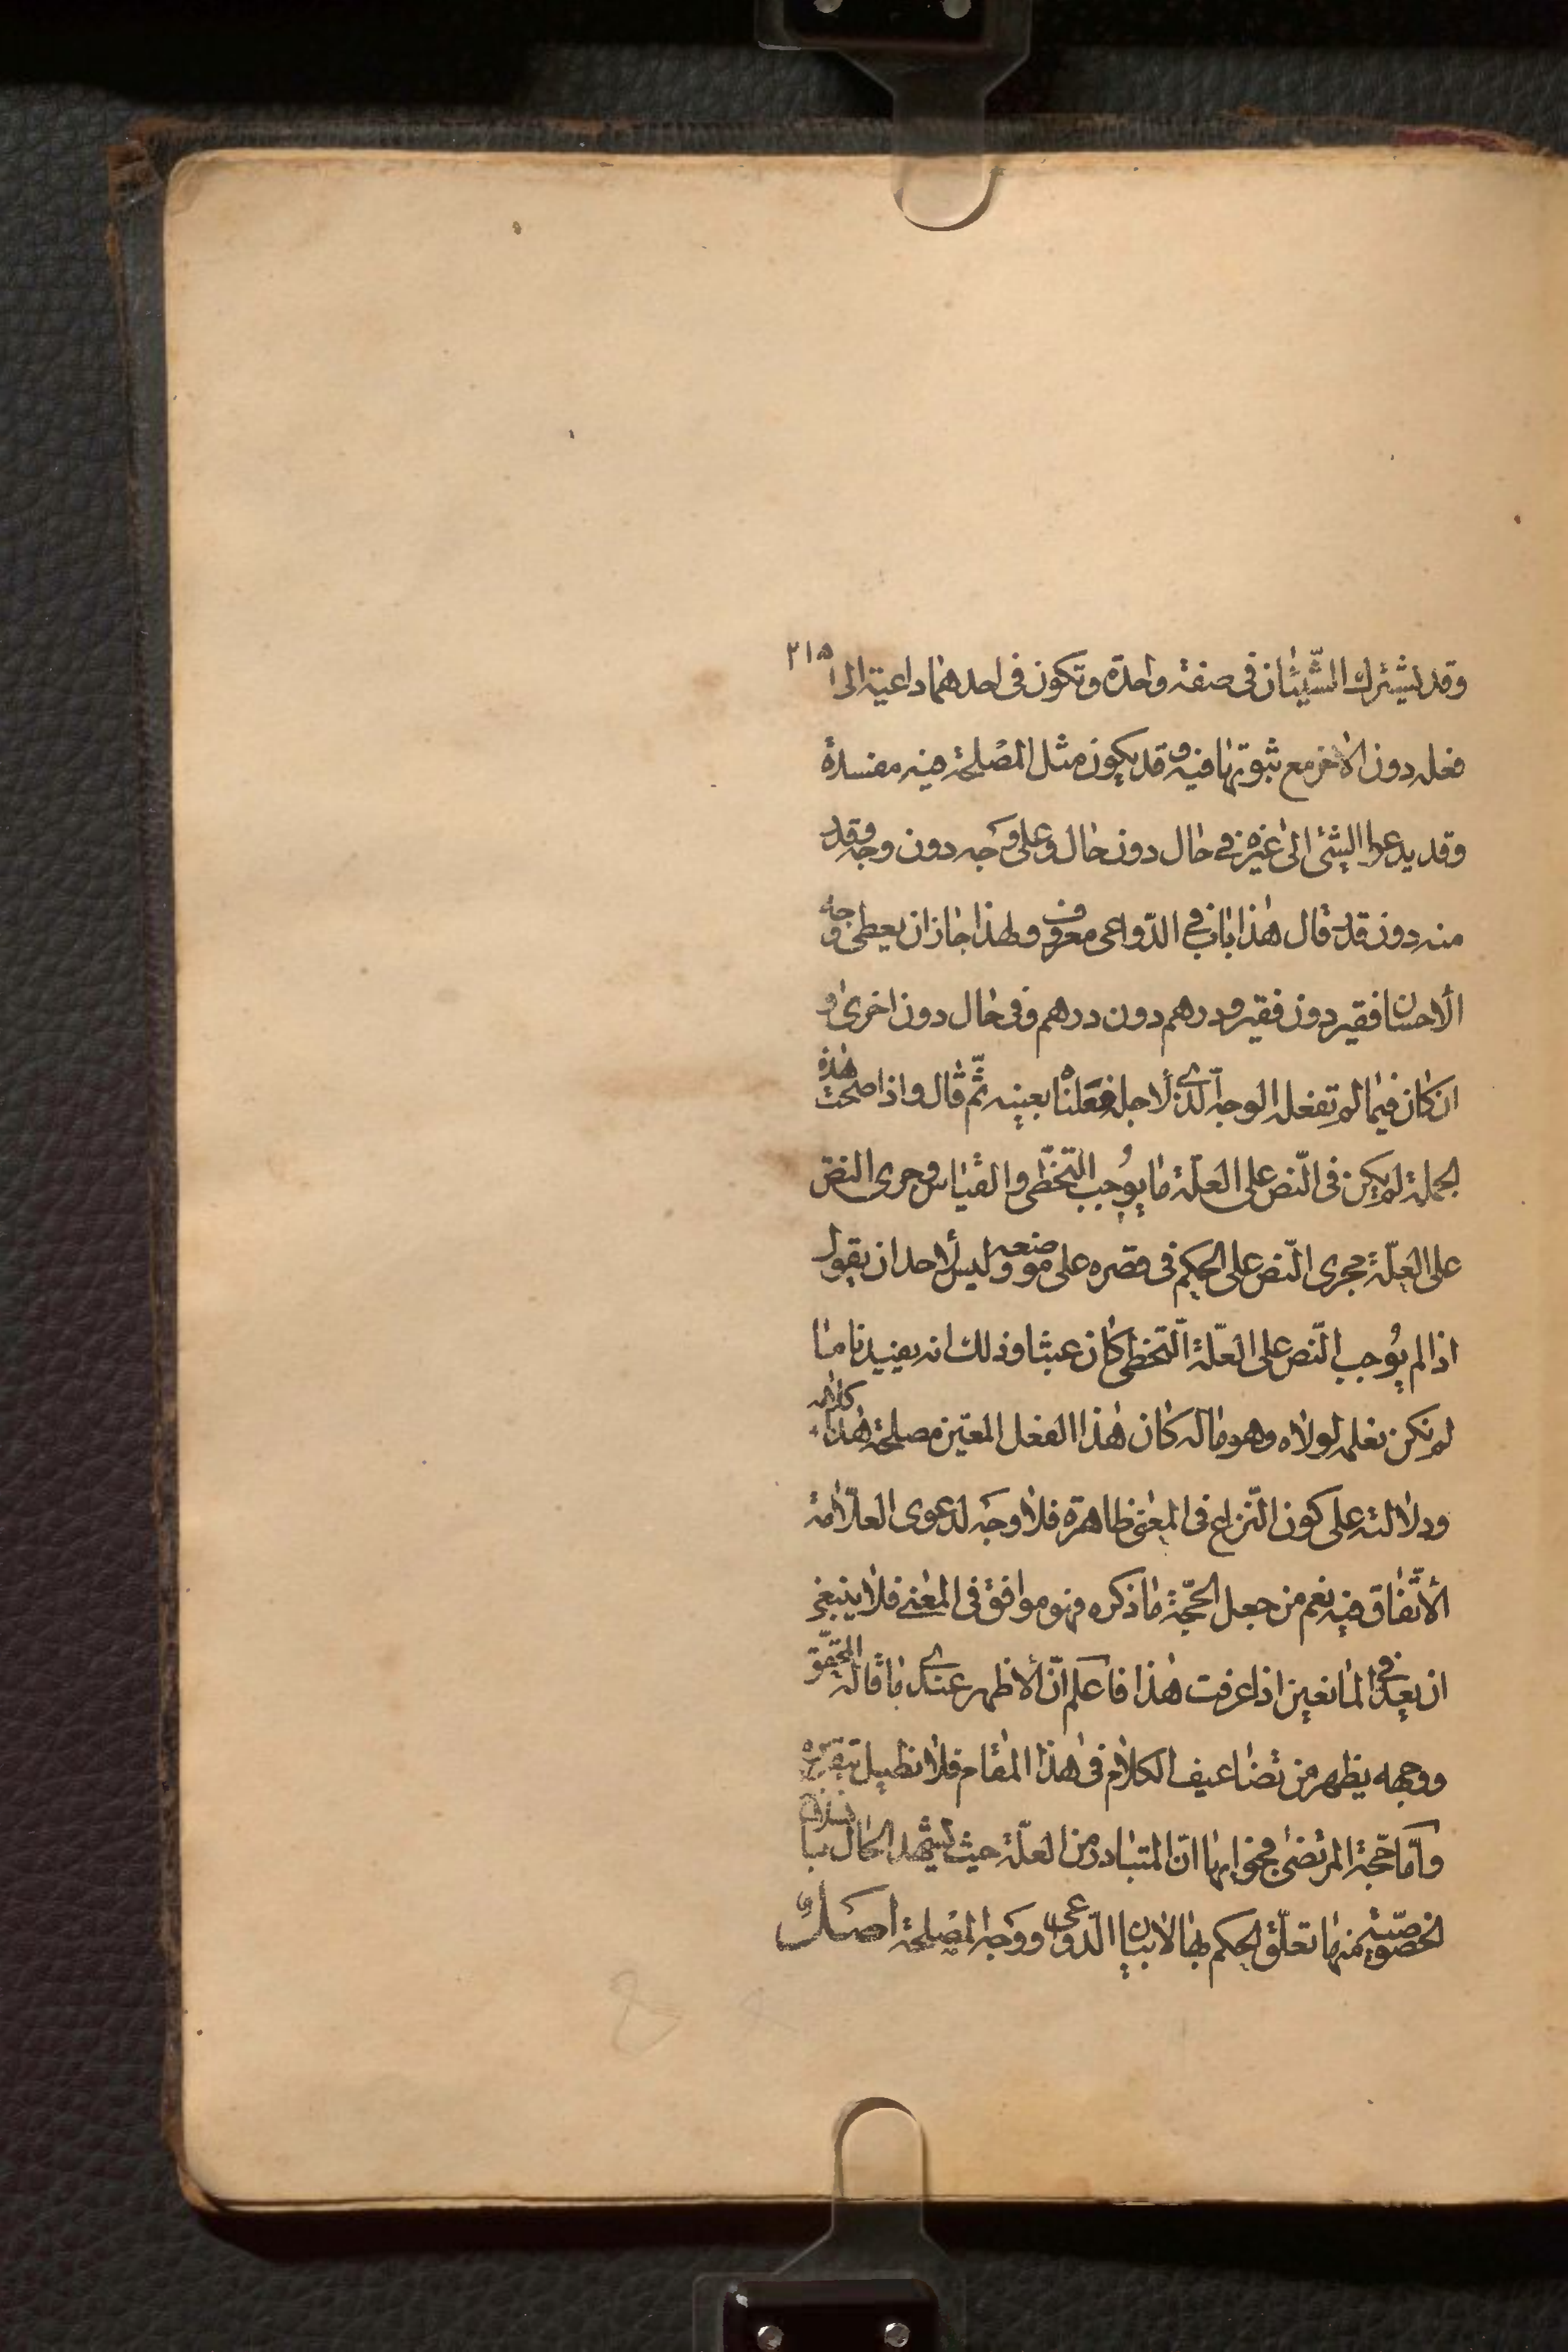 ٢١٥
وقد يشترك الشّيئان فى صفة واحدة وتكون فى احدهما داعية الى
فعله دون الاخر مع ثبوتها فيه وقد يكون مثل المصْلحة فيه مفسدة
وقد يدعوا الشئ الى غيره فى حال دون حال وعلى وجه دون وجه وقدر
منه دون قدر قال هذا باب فى الدّواعى معروف ولهذا جاز ان يعطى وجه
الاحسان فقير دون فقير ودرهم دون درهم وفى حال دون اخرى و
ان كان فيما لم تفعله الوجه الّذى لاجله فعَلناه بعينه ثمّ قال واذا صحّت هذه
الجملة لم يكن فى النّص على العلّة ما يوُجب التّخطّى والقياس وجرى النصّ
على العلّة مجرى النّص على الحكم فى قصره على موضعه وليس لأحد ان يقول
اذا لم يوُجب النّص على العلّة التّخطى كان عبثا وذلك انه يفيدنا ما
لم نكن نعلمه لولاه وهو ما له كان هذا الفعل المعيّن مصلحة هذا كلامه
ودلالته على كون النّزاع فى المعنى ظاهرة فلا وجَه لدعوى العلّامة
الأتّفاق فيه نعم من جعل الحجّة ما ذكره فهو موافق فى المعنى فلا ينبغى
ان يعد فى المانعين اذا عرفت هذا فاعلم انّ الأظهر عندى ما قاله المحقّق
ووجهه يظهر من تضاعيف الكلام فى هذا المقام فلا نطيل بتقريره
وامّا حّجة المرتضى فجوابها انّ المتبادر من العلّة حيث يشهد الحال بانسلاخ
الخصوصيّة منها تعلّق الحكم بها لا بيان الدّواعى ووجه المصْلحة اصَلٌ